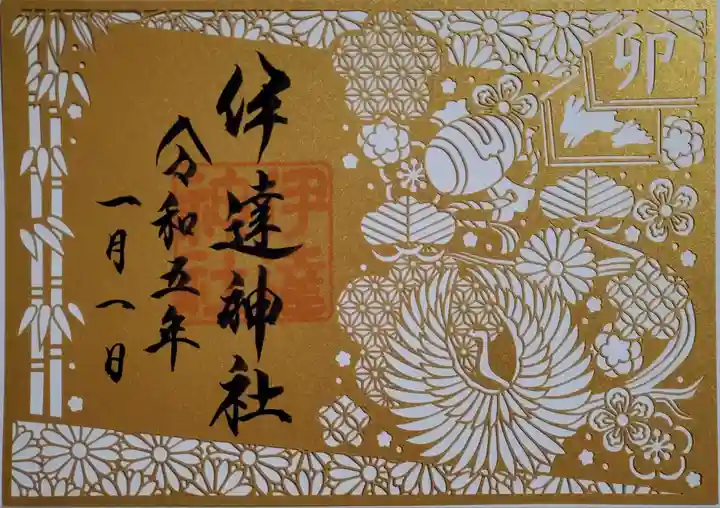 卯
伊達神社
伊達
神社
令和五年
一月一日